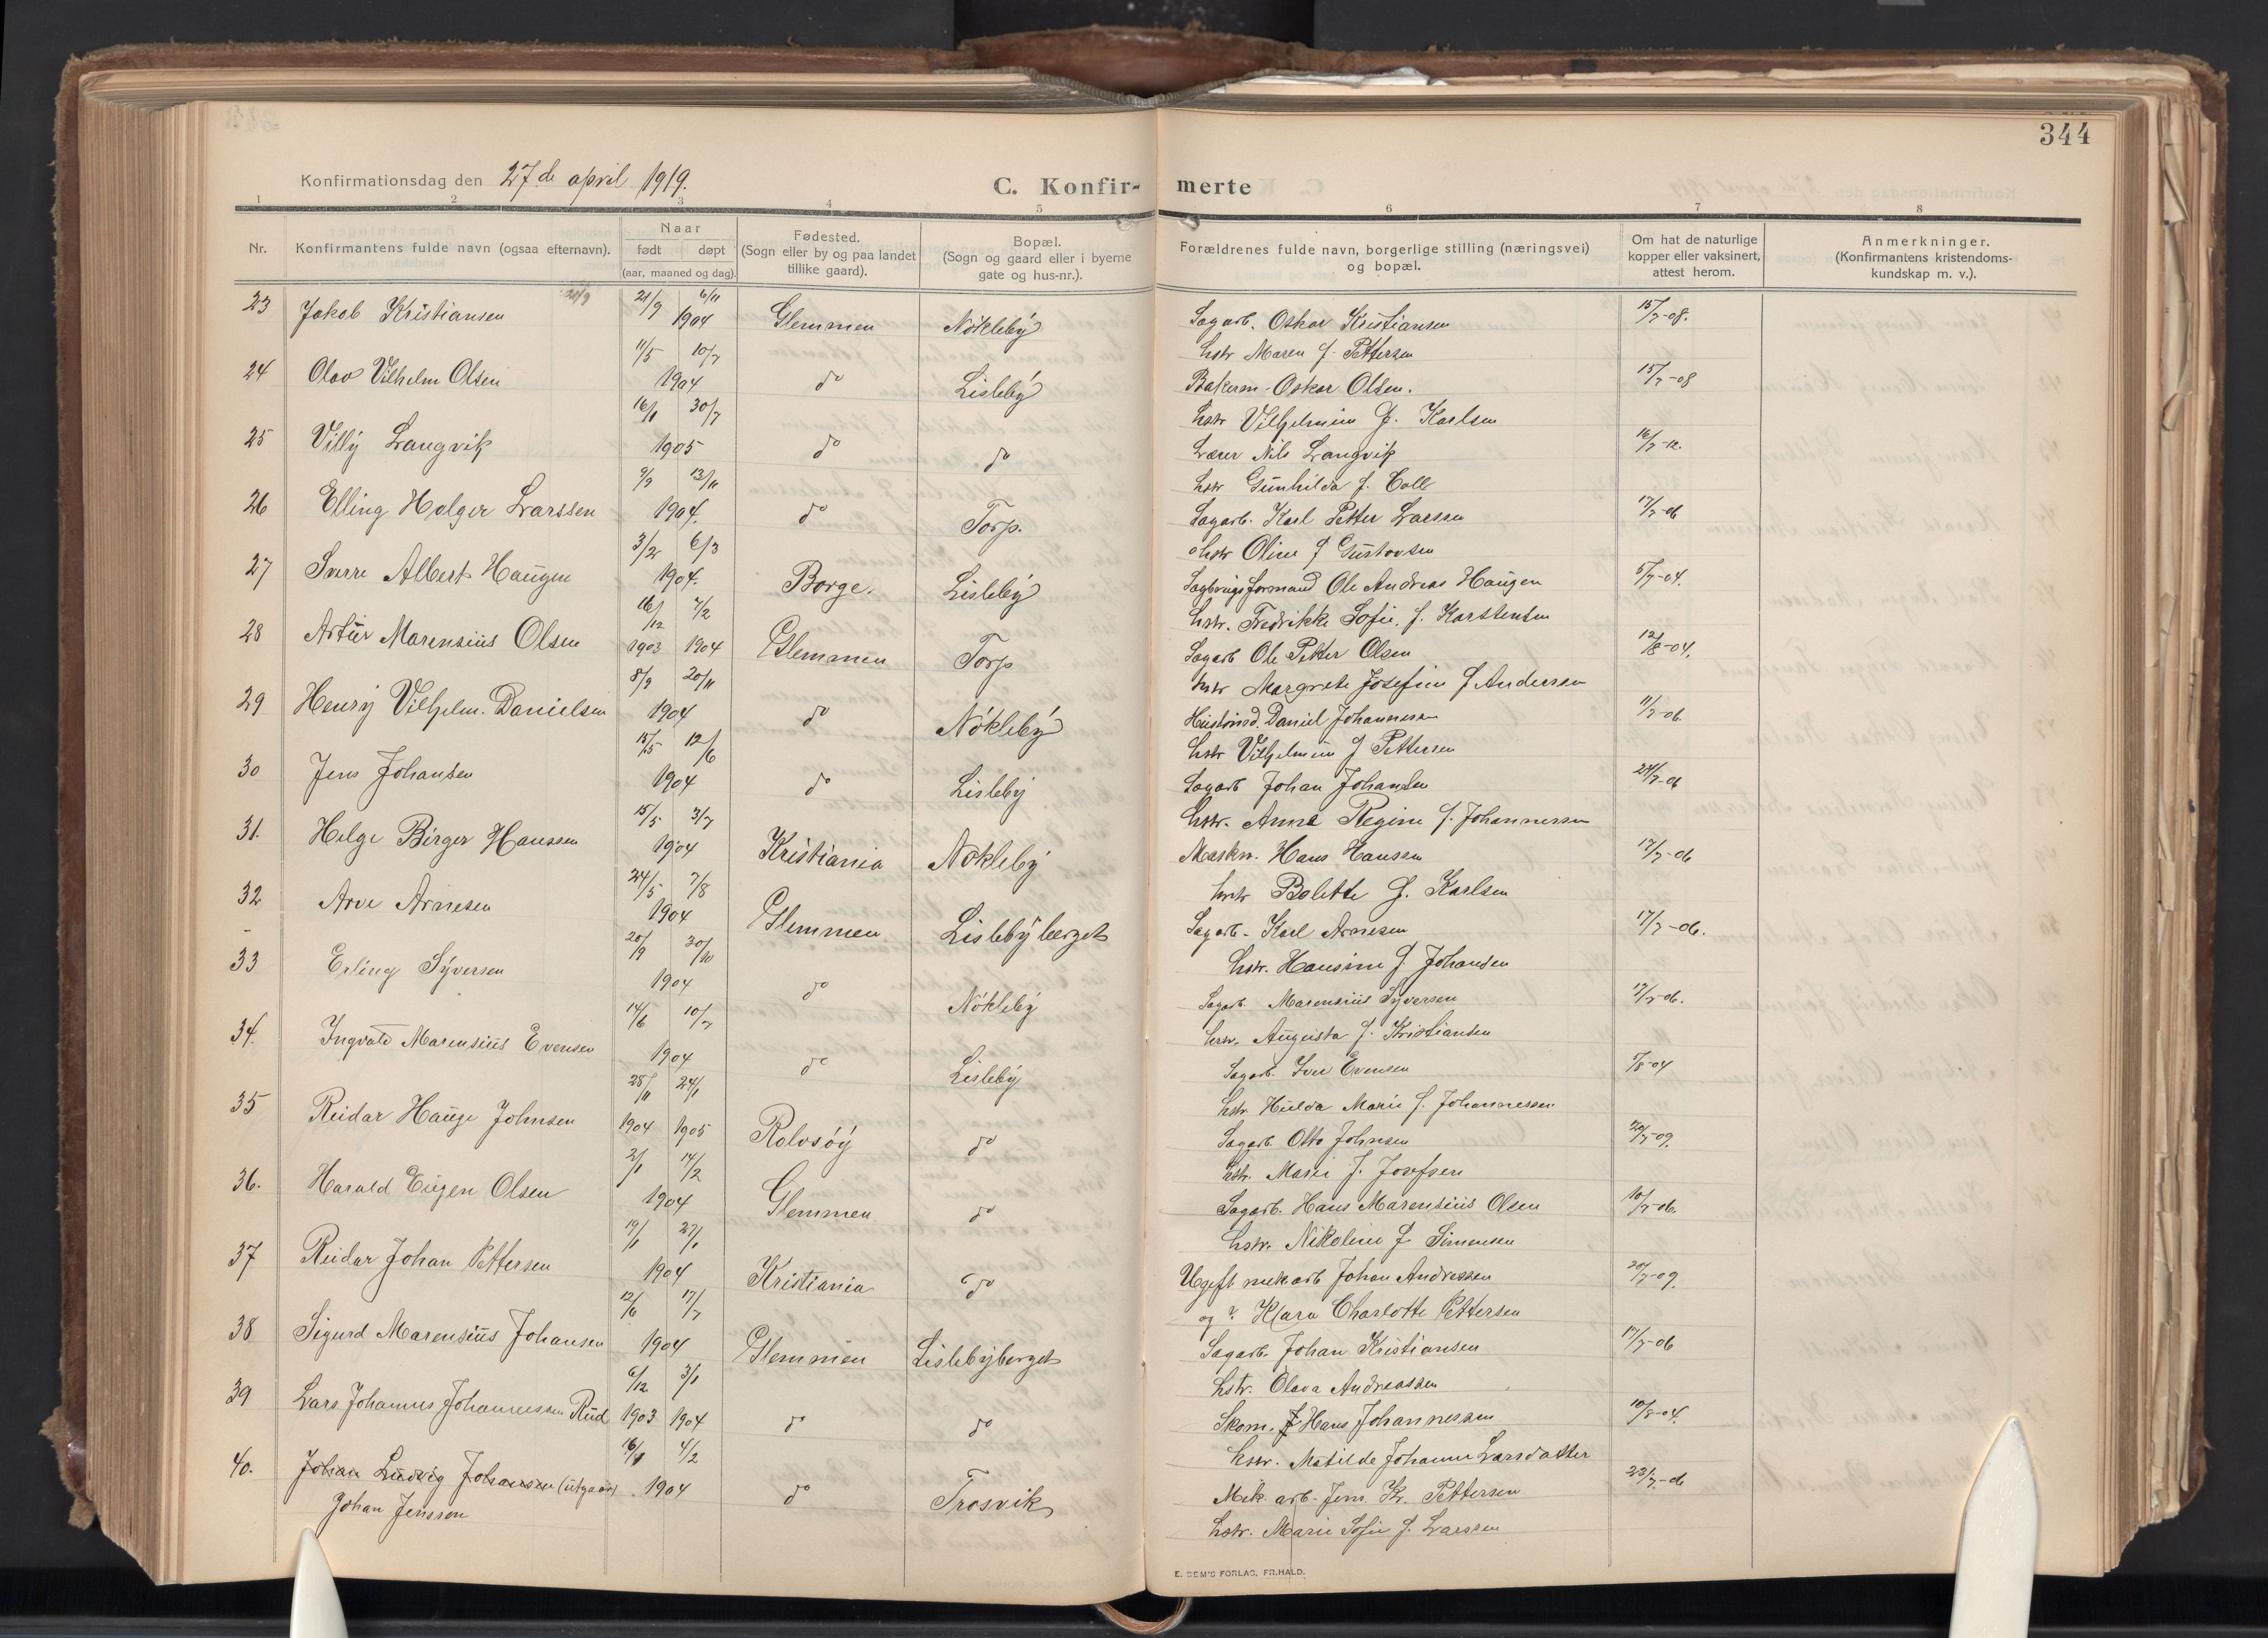 344
Konfirmationsdag den 27de april 1919.
C. Konfir- merte
1 2 3 4 5 6 7 8
Nr.
Konfirmantens fulde navn (ogsaa efternavn).
Naar
født døpt
(aar, maaned og dag).
Fødested.
(Sogn eller by og paa landet
tillike gaard).
Bopæl.
(Sogn og gaard eller i byerne
gate og hus-nr.).
Forældrenes fulde navn, borgerlige stilling (næringsvei)
og bopæl.
Om hat de naturlige
kopper eller vaksinert,
attest herom.
Anmerkninger.
(Konfirmantens kristendoms-
kundskap m. v.).
21/9
23 Jakob Kristiansen 21/9 6/11 1904 Glemmen Nökleby Sagarb. Oskar Kristiansen 15/7-08.
hstr Maren f. Pettersen
24 Olav Vilhelm Olsen 11/5 10/7 1904 do Lisleby Bakerm. Oskar Olsen. 15/7-08
hstr Vilhelmine f. Karlsen
25 Villy Langvik 30/7 1905 do do Lærer Nils Langvik 16/7-12.
hstr Gunhilda f.
26 Elling Holger Larssen 9/9 13/11 1904. do Torp. Sagarb. Karl Petter Larssen 17/7-06
hstr Oline f Gustavsen
27 Sverre Albert Haugen 3/2 6/3 1904. Borge. Lisleby Sagbrugsformand Ole Andreas Haugen 5/7-04.
hstr. Fredrikke Sofie. f. Karstensen
28 Artur Marensius Olsen 16/12 1903 7/2 1904 Glemmen Torp Sagarb Ole Petter Olsen 12/8-04.
hstr Margrete Josefine f Andersen
29 Henry Vilhelm. Danielsen 8/9 20/11 1904 do Nökleby Daniel Johannessen 11/7-06.
hstr Vilhelmine f Pettersen
30 Jens Johansen 15/5 12/6 1904 do Lisleby Sagarb Johan Johansen 24/7-06
hstr. Anna Regine f. Johannessen
31. Helge Birger Hanssen 15/5 3/7 1904 Kristiania Nökleby Maskn. Hans Hanssen 17/7-06
hstr Bolette f. Karlsen
32 Arve Arnesen 24/5 7/8 1904 Glemmen Lislebyberget Sagarb. Karl Arnesen 17/7-06.
hstr. Hansine f Johansen
33 Erling Syversen 20/9 30/10 1904 do Nökleby Sagarb. Marensius Syversen 17/7-06.
hstr. Augusta f. Kristiansen
34. Ingvald Marensius Evensen 14/6 10/7 1904 do Lisleby Sagarb. Iver Evensen 5/8-04
hstr. Hulda Marie f. Johannessen
35 Reidar Hauge Johnsen 28/11 1904 24/1 1905 Rolvsöy do Sagarb. Otto Johnsen 20/7-09.
hstr. Marie f. Josefsen
36. Harald Eugen Olsen 2/1 14/2 1904 Glemmen do Sagarb. Hans Marensius Olsen 10/7-06.
hstr. Nikoline f Simensen
37 Reidar Johan Pettersen 19/1 27/1 1904 Kristiania do Ugift mek arb Johan Andressen 20/7-09.
og ? Klara Charlotte Pettersen
38 Sigurd Marensius Johansen 12/6 17/7 1904 Glemmen Lislebyberget Sagarb. Johan Kristiansen 17/7-06
hstr. Olava Andreassen
39 Lars Johannes Johannessen Rud 6/12 1903 3/1 1904 do do Skom. Hans Johannessen 10/8-04.
hstr. Matilde Johanne Larsdatter
40. Johan Ludvig Johansen (utgaar) 16/1 4/2 1904 do Trosvik Mek. arb. Jens Kr. Pettersen 23/7-06
Johan Jensson
hstr. Marie Sofie f. Larssen
E. SEM'S FORLAG, FR.HALD.